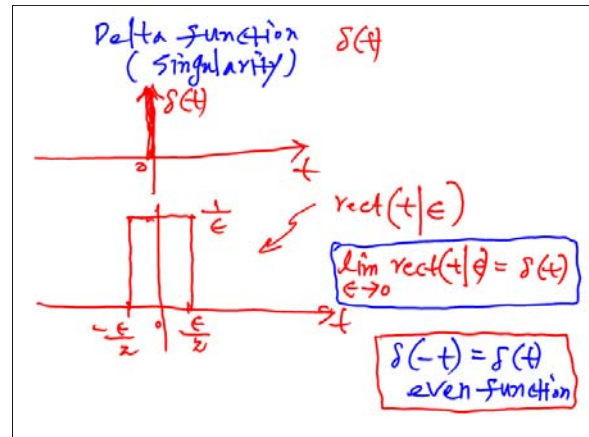 Delta function δ(t)
(singularity)
δ(t)
0
t
1/ϵ
rect(t|ϵ)
lim rect(t|ϵ) = δ(t)
ϵ→0
-ϵ/2 0 ϵ/2 t
δ(-t) = δ(t)
even function